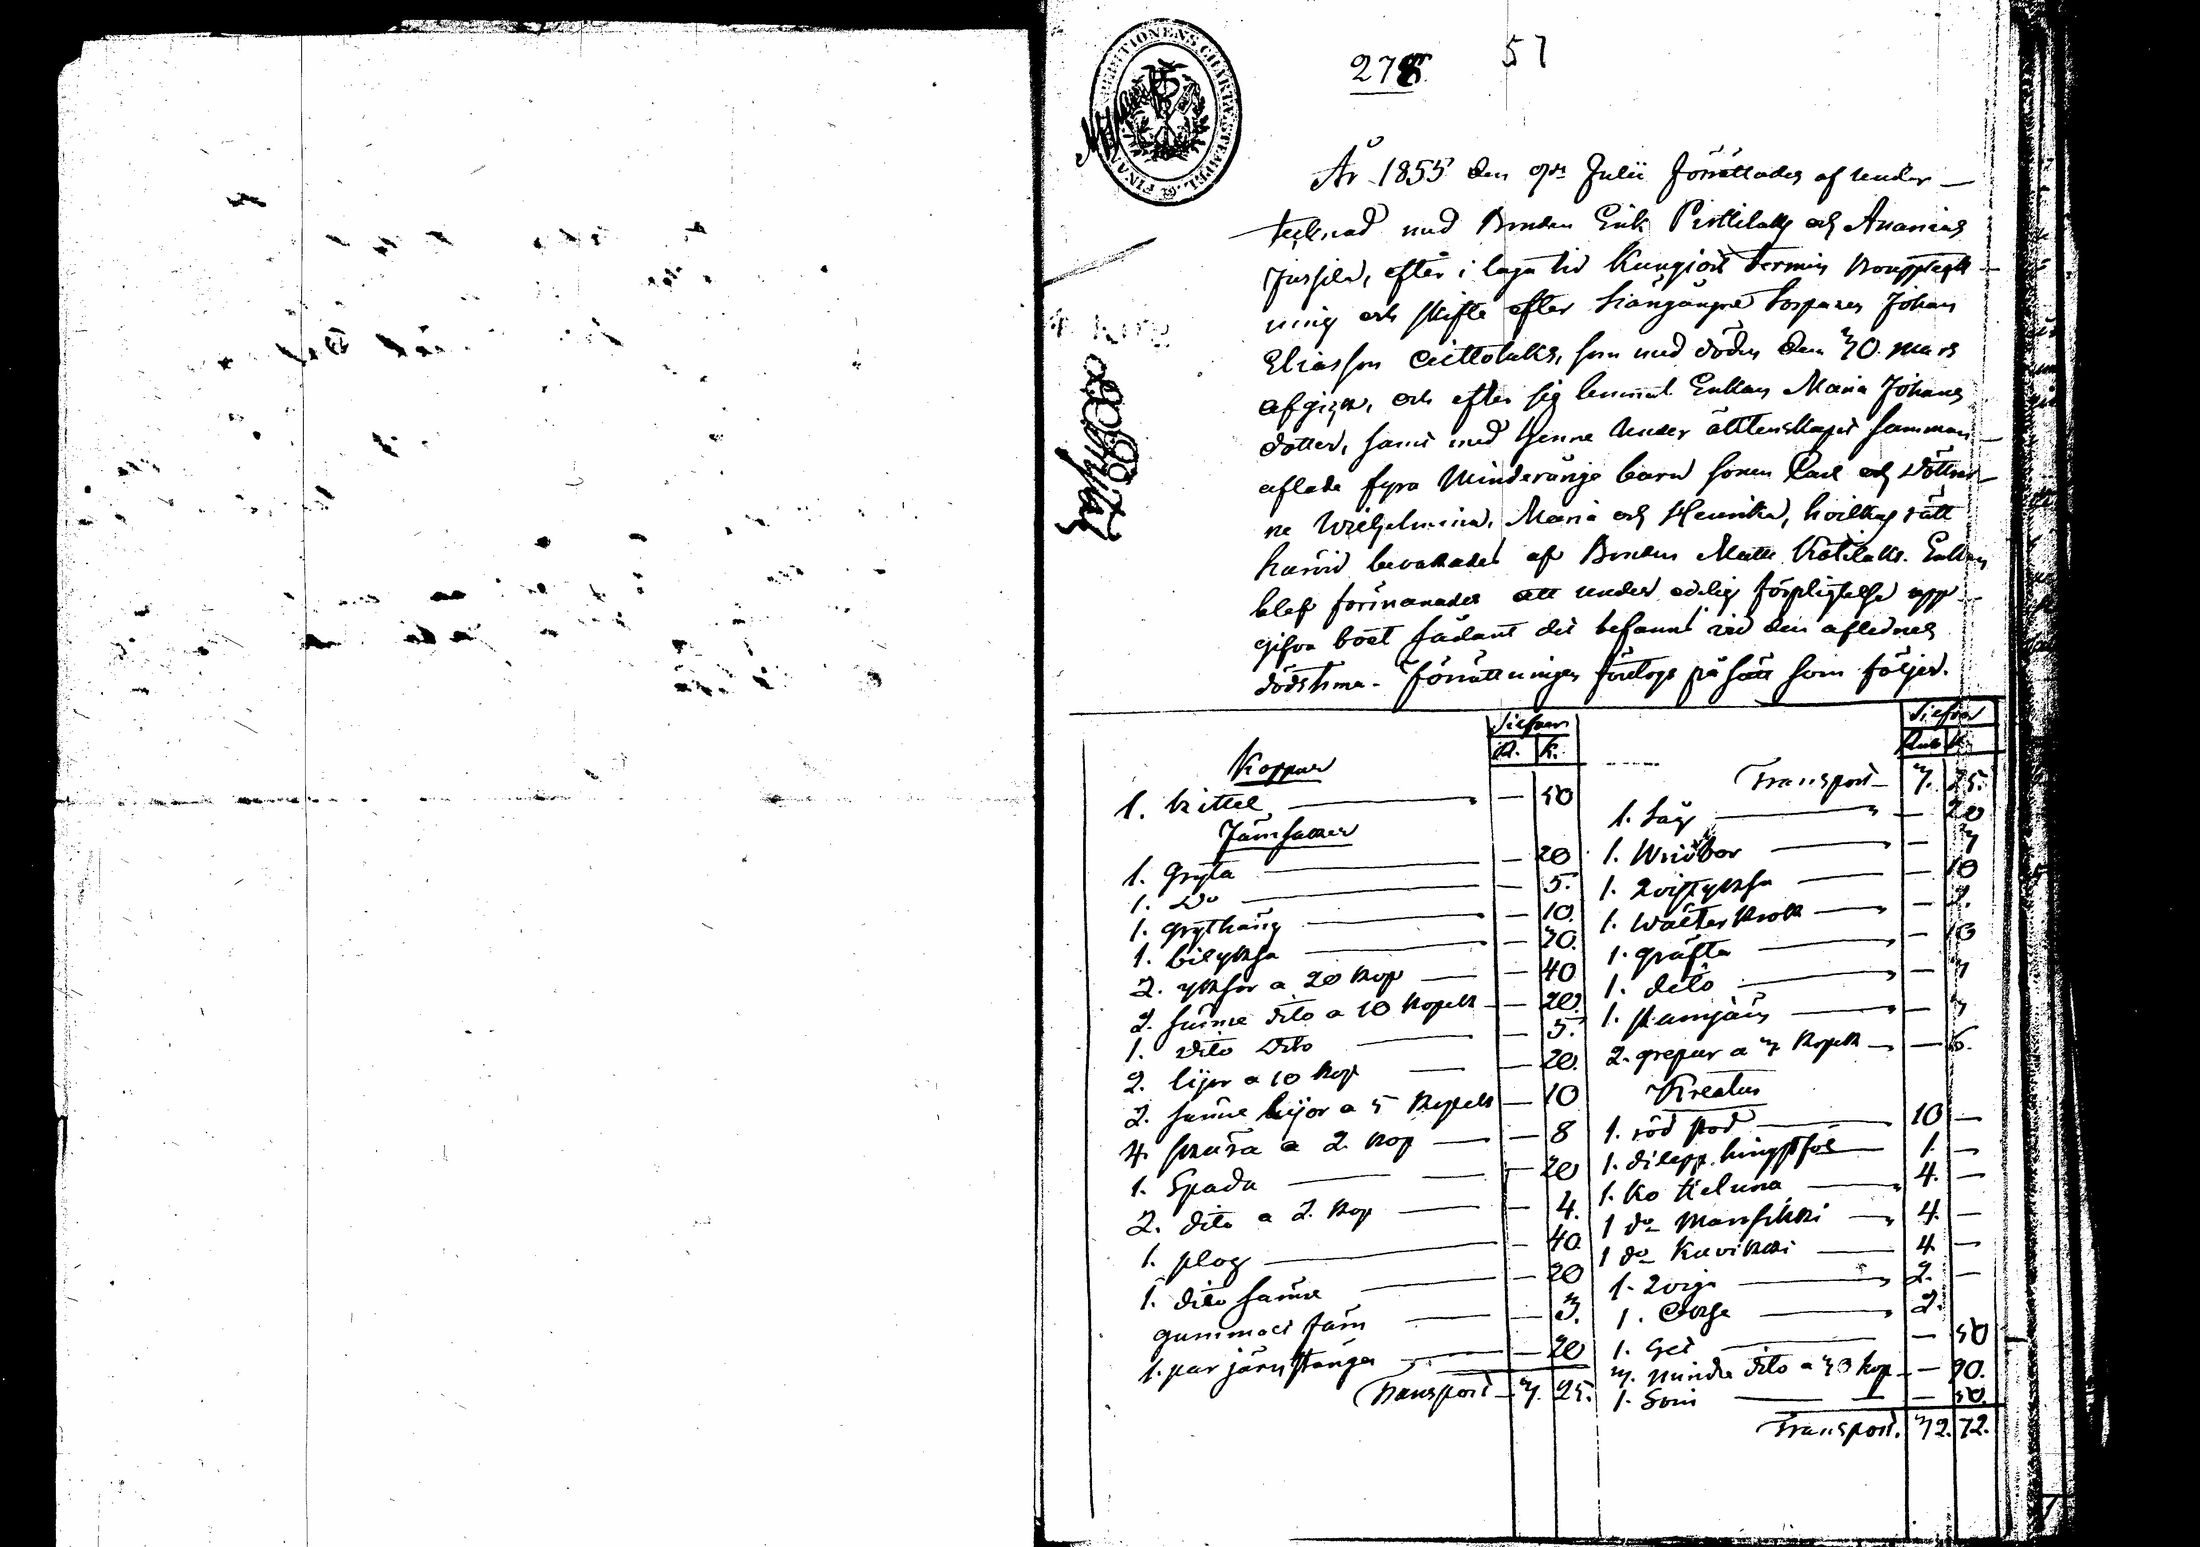 278 57
FINANS EXPEDITIONENS CHARTÆ STEMPEL
År 1855 den Julii förrättades af under-
tecknad med Bonden Erik Perttilak och Ananias
Jussila, efter i laga tid Kungjord termin Bouppteck-
ning och skifte efter hädangångne Torparen Johan
Eliasson som med döden den 30 Mars
afgick, och efter sig lemnat Enkan Maria Johans
dotter, samt med henne under äktenskapet samman-
aflade fyra Minderåriga barn sonen Carl och Döttrar-
ne Wilhelmina, Maria och Henrika, hvilkas rätt
härvid bevakades af Bonden Matts Kotilak. Enkan
blef förmanader att under edelig förpligtelse upp-
gifva boet sådant det befanns vid den aflidnes
dödstima. Förrättningen företogs på sätt som följer.
Silfver Silfver
R. K. Rub K.
Koppar Transport 3. 25.
1. kittel — 50
1. Såg — 20
Järnsaker
1. Wridbor — 3
1. Gryta — 20
1. Do — 5.
1. — 10
1. grythäng — 10.
1. — 2.
1. bilyxa — 30.
1. gräfta — 10
2. yxor a 20 kop — 40
1. dito — 3
2. sämre dito a 10 kopek — 20.
1. — 3
1. dito dito — 5.
2. grepar a 3 kopek — 6.
2. lijor a 10 kop — 20.
Kreatur
2. sämre lijor a 5 kopek — 10
1. röd sto 10 —
4. skära a 2 kop — 8
1. hingstföl 1. —
1. Spada — 20
1. ko Heluna 4. —
2. dito a 2. kop — 4.
1 do Mansikki 4. —
1. plog — 40
1 do 4. —
1. dito sämre — 20
1. qviga 2. —
gammalt Järn — 3.
1. Oxe 2.
1. par järnstänger — 20
1. Get — 50
3. mindre dito a 30 kop — 90.
Transport 3. 25.
1. Svin — 50.
Transport. 32. 72.